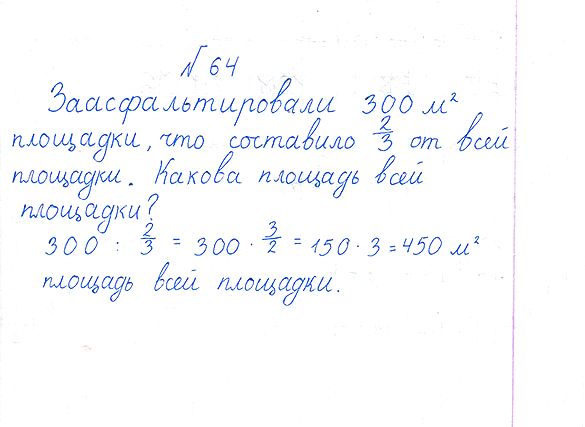 № 64
Заасфальтировали 300 м²
площадки, что составило 2/3 от всей
площадки. Какова площадь всей
площадки?
300 : 2/3 = 300 · 3/2 = 150 · 3 = 450 м²
площадь всей площадки.